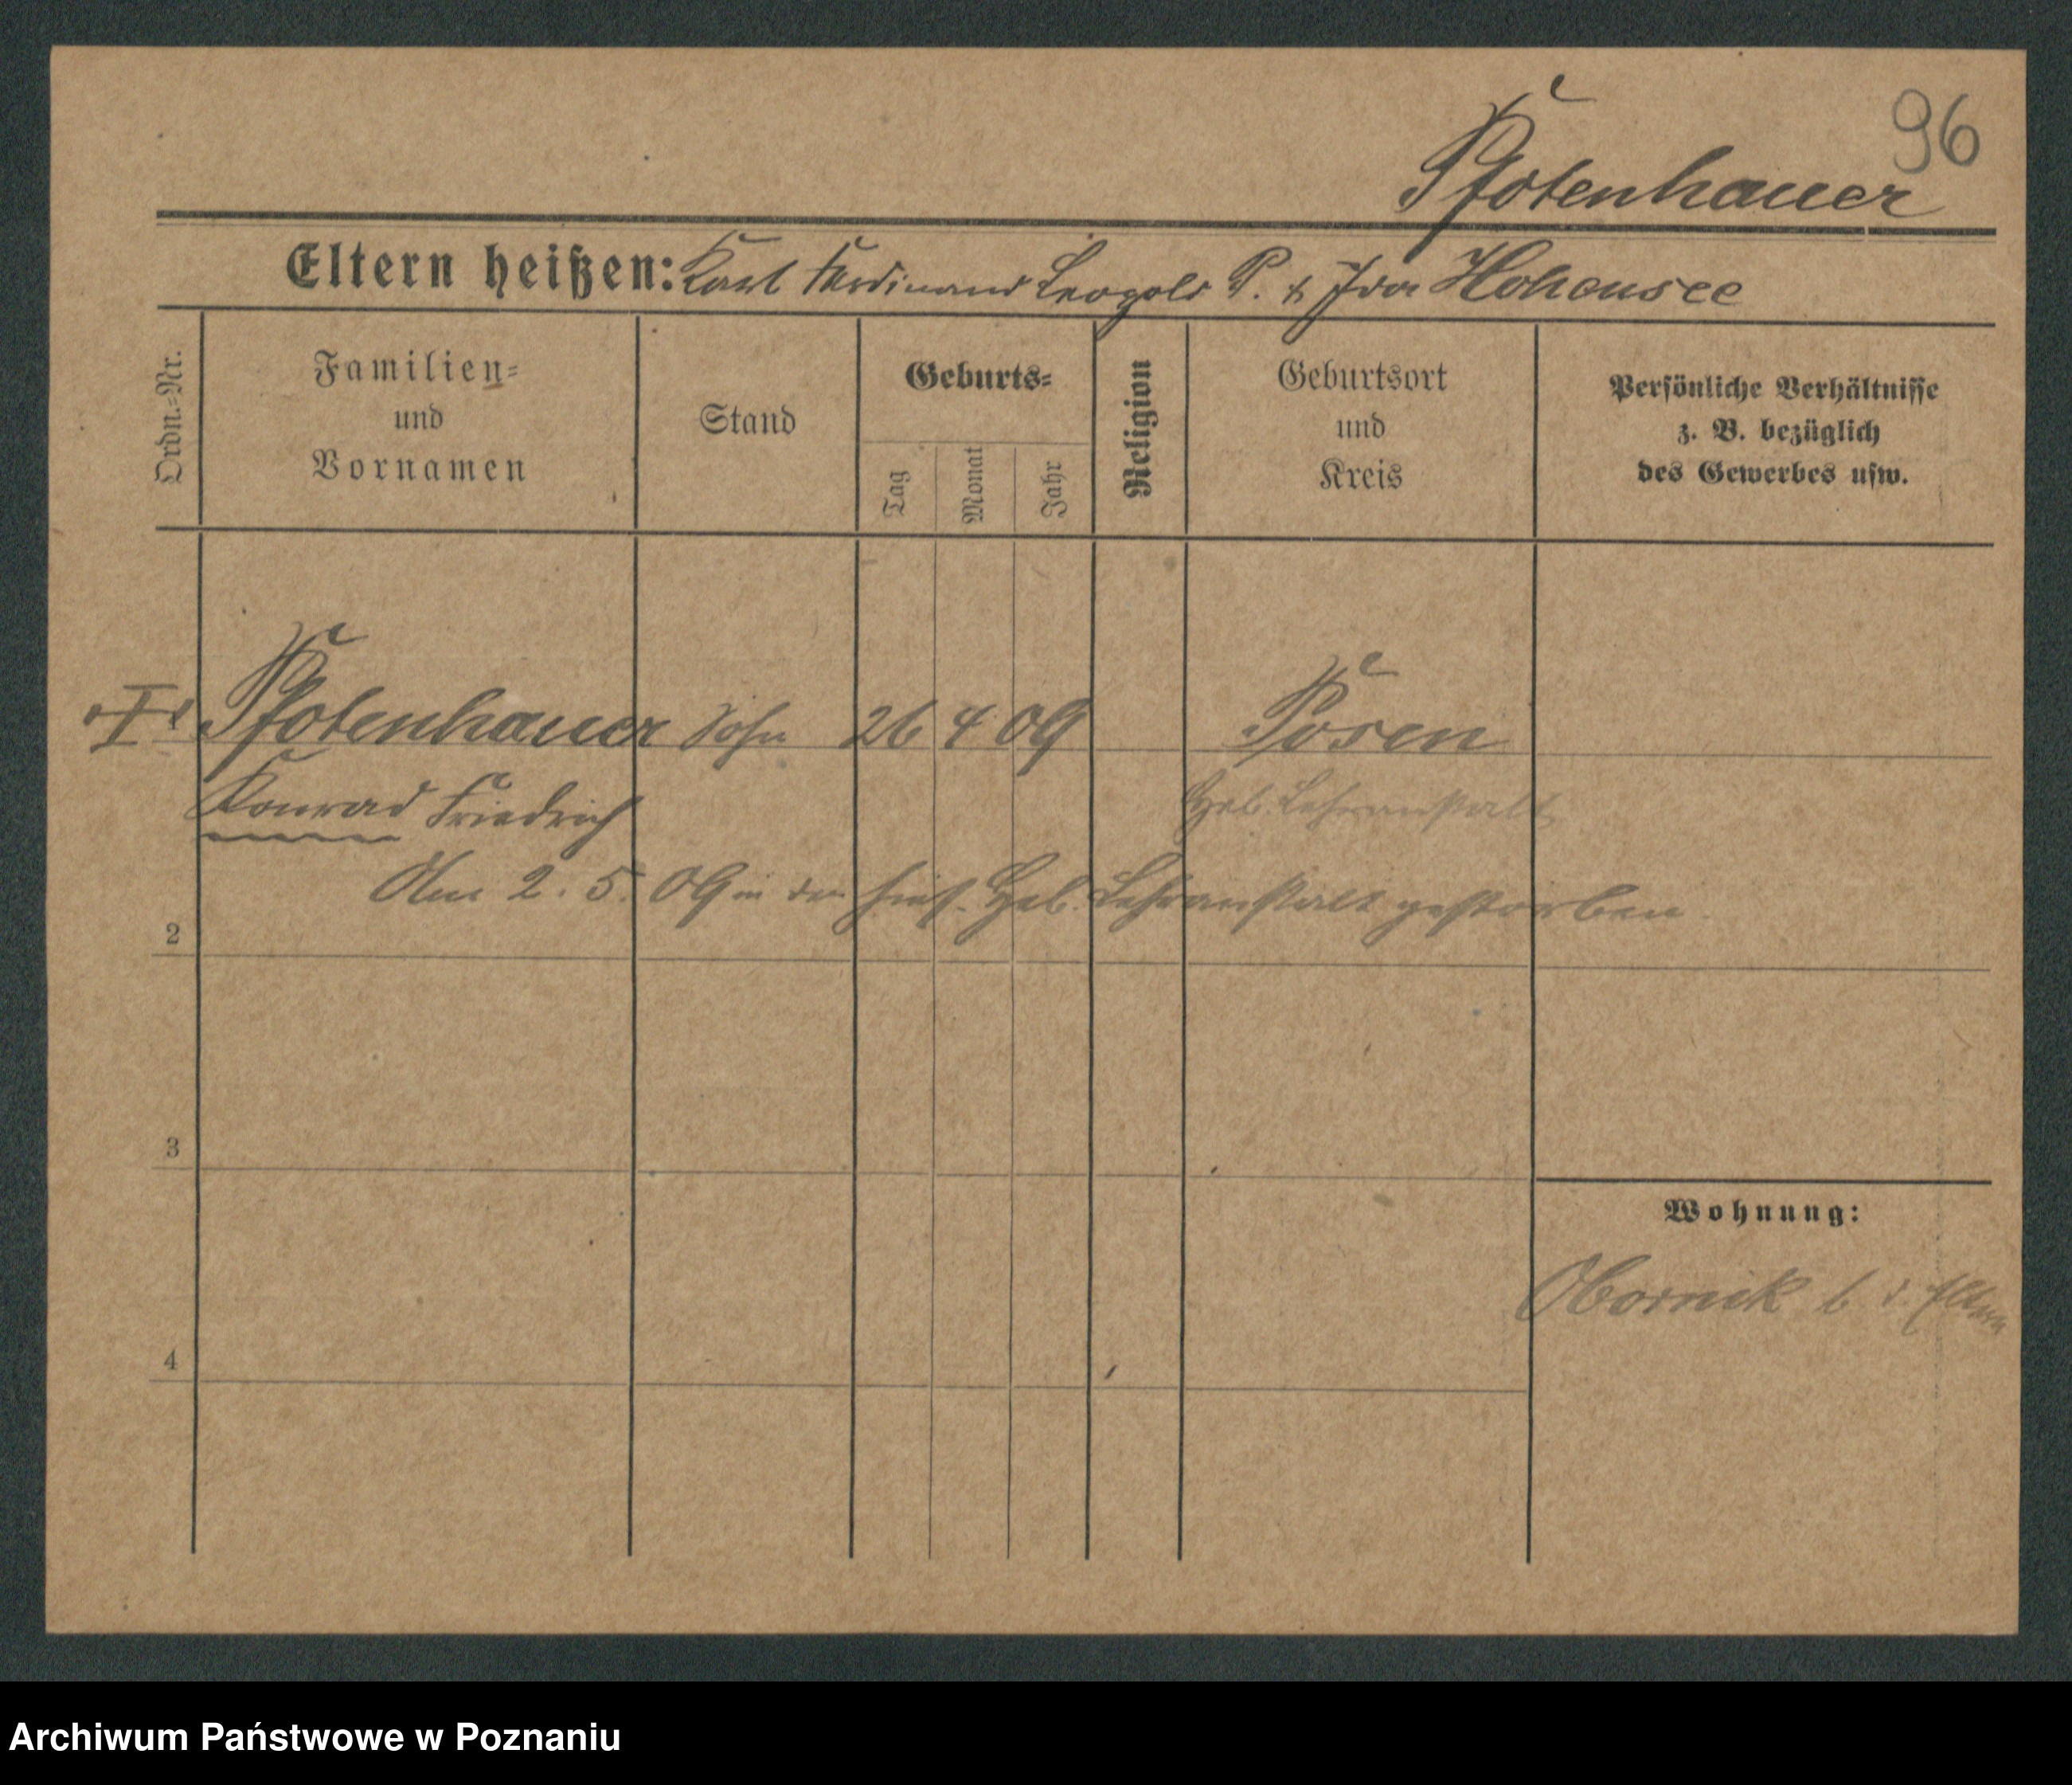 96
Pfotenhauer
Eltern heißen: Karl Ferdinand Leopold P. & Ida Hohensee
Ordn.=Nr.
Familien=
und
Vornamen
Stand
Geburts=
Tag
Monat
Jahr
Religion
Geburtsort
und
Kreis
Persönliche Verhältnisse
z. B. bezüglich
des Gewerbes usw.
Pfotenhauer Sohn 26 4 09 Posen
Konrad Friedrich Heb. Lehranstalt
Am 2. 5. 09 in der hies. Heb. Lehranstalt gestorben.
2
3
Wohnung:
Obornik b. d. Eltern
4
Archiwum Państwowe w Poznaniu